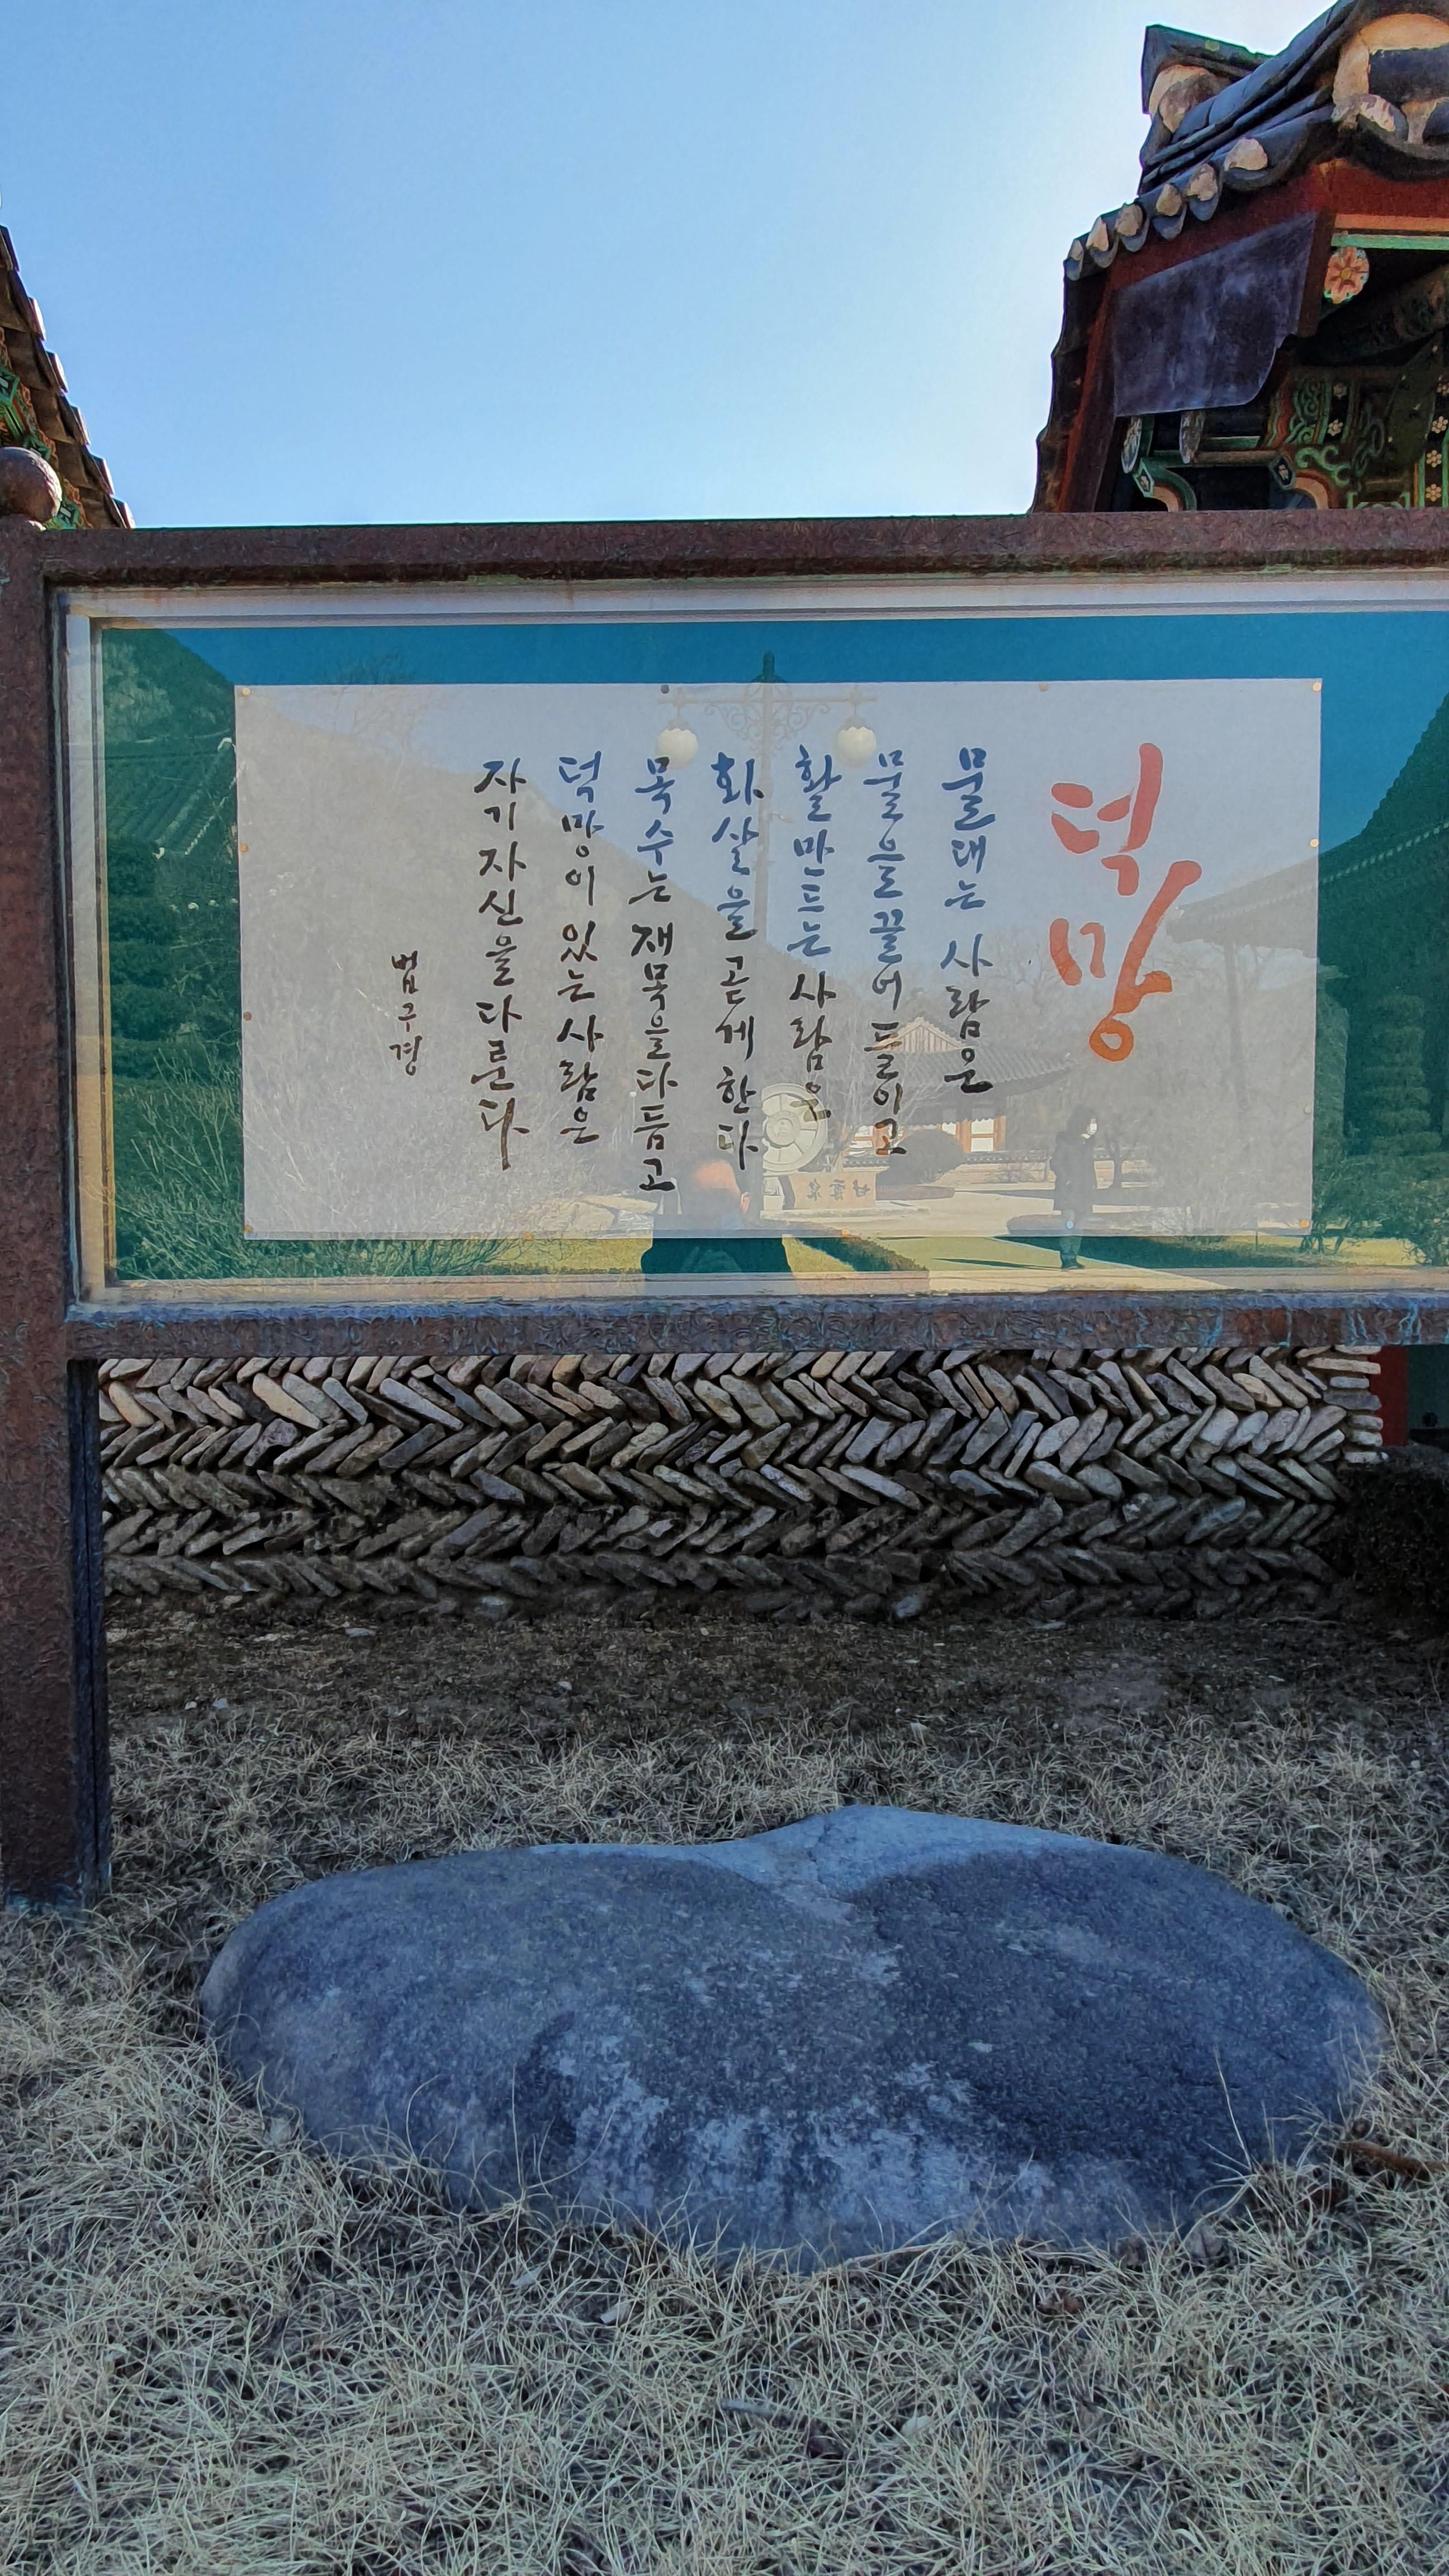 덕망
물대는 사람은
물을 끌어 들이고
활 만드는 사람은
화살을 곧게 한다
목수는 재목을 다듬고
덕망이 있는 사람은
자기 자신을 다룬다
법구경